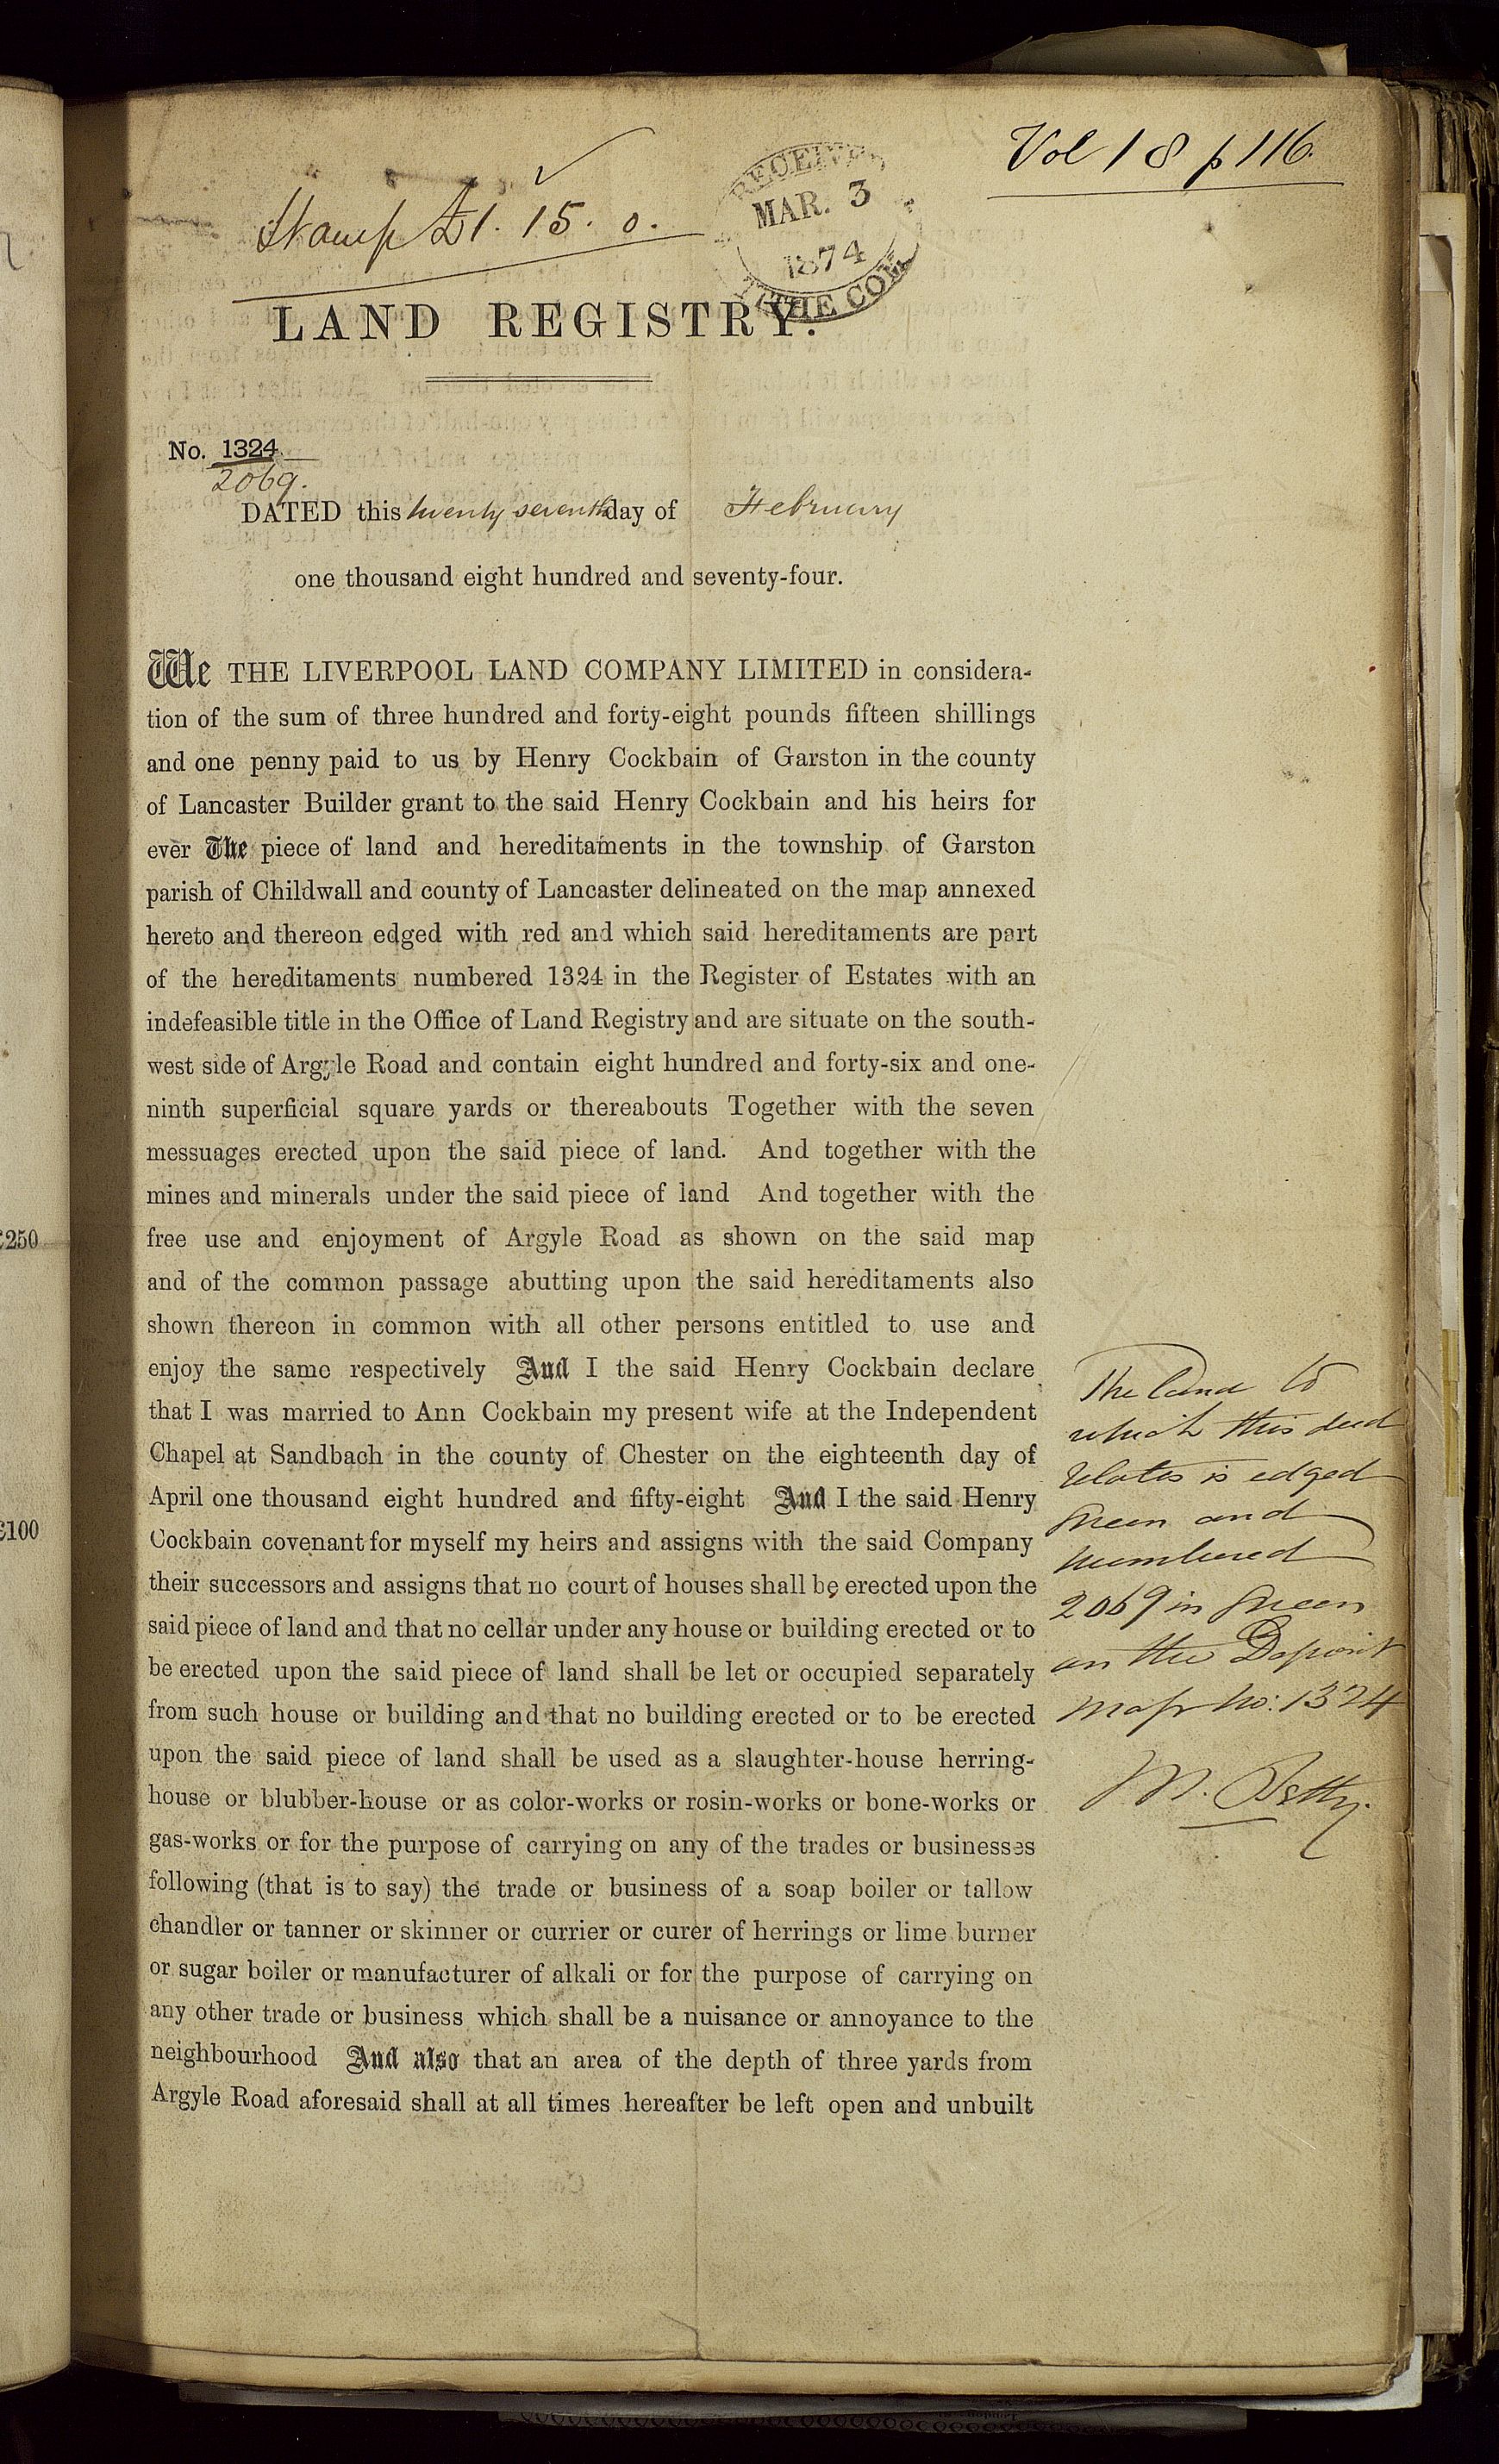 Vol 18 p 116.
Stamp £1. 15. 0.
RECEIVED
MAR. 3
1874
THE COM
LAND REGISTRY.
No. 1324
2069.
DATED this twenty seventh day of February
one thousand eight hundred and seventy-four.
We THE LIVERPOOL LAND COMPANY LIMITED in considera-
tion of the sum of three hundred and forty-eight pounds fifteen shillings
and one penny paid to us by Henry Cockbain of Garston in the county
of Lancaster Builder grant to the said Henry Cockbain and his heirs for
ever The piece of land and hereditaments in the township of Garston
parish of Childwall and county of Lancaster delineated on the map annexed
hereto and thereon edged with red and which said hereditaments are part
of the hereditaments numbered 1324 in the Register of Estates with an
indefeasible title in the Office of Land Registry and are situate on the south-
west side of Argyle Road and contain eight hundred and forty-six and one-
ninth superficial square yards or thereabouts Together with the seven
messuages erected upon the said piece of land. And together with the
mines and minerals under the said piece of land And together with the
free use and enjoyment of Argyle Road as shown on the said map
and of the common passage abutting upon the said hereditaments also
shown thereon in common with all other persons entitled to use and
enjoy the same respectively And I the said Henry Cockbain declare
that I was married to Ann Cockbain my present wife at the Independent
Chapel at Sandbach in the county of Chester on the eighteenth day of
April one thousand eight hundred and fifty-eight And I the said Henry
Cockbain covenant for myself my heirs and assigns with the said Company
their successors and assigns that no court of houses shall be erected upon the
said piece of land and that no cellar under any house or building erected or to
be erected upon the said piece of land shall be let or occupied separately
from such house or building and that no building erected or to be erected
upon the said piece of land shall be used as a slaughter-house herring-
house or blubber-house or as color-works or rosin-works or bone-works or
gas-works or for the purpose of carrying on any of the trades or businesses
following (that is to say) the trade or business of a soap boiler or tallow
chandler or tanner or skinner or currier or curer of herrings or lime burner
or sugar boiler or manufacturer of alkali or for the purpose of carrying on
any other trade or business which shall be a nuisance or annoyance to the
neighbourhood And also that an area of the depth of three yards from
Argyle Road aforesaid shall at all times hereafter be left open and unbuilt
The land to
which this deed
relates is edged
green and
numbered
2069 in green
on the Deposit
map No: 1324
£250
£100